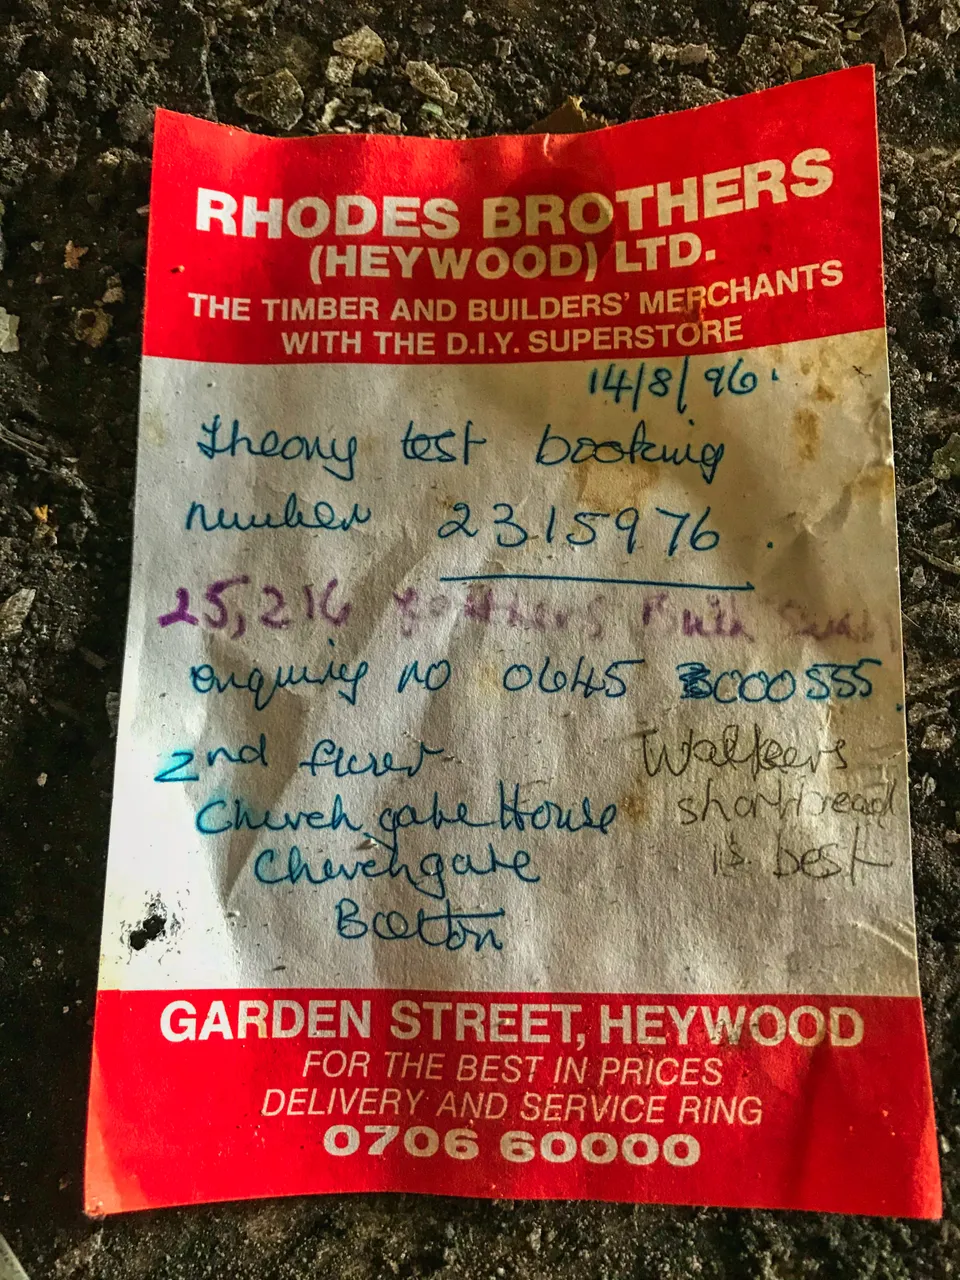 RHODES BROTHERS
(HEYWOOD) LTD.
THE TIMBER AND BUILDERS' MERCHANTS
WITH THE D.I.Y. SUPERSTORE
14/8/96.
theory test booking
number 2315976.
25,216 feathers Built Swan
enquiry no 0645 000555.
2nd floor
Church gate House
Churchgate
Bolton
Walkers
shortbread
is best
GARDEN STREET, HEYWOOD
FOR THE BEST IN PRICES
DELIVERY AND SERVICE RING
0706 60000